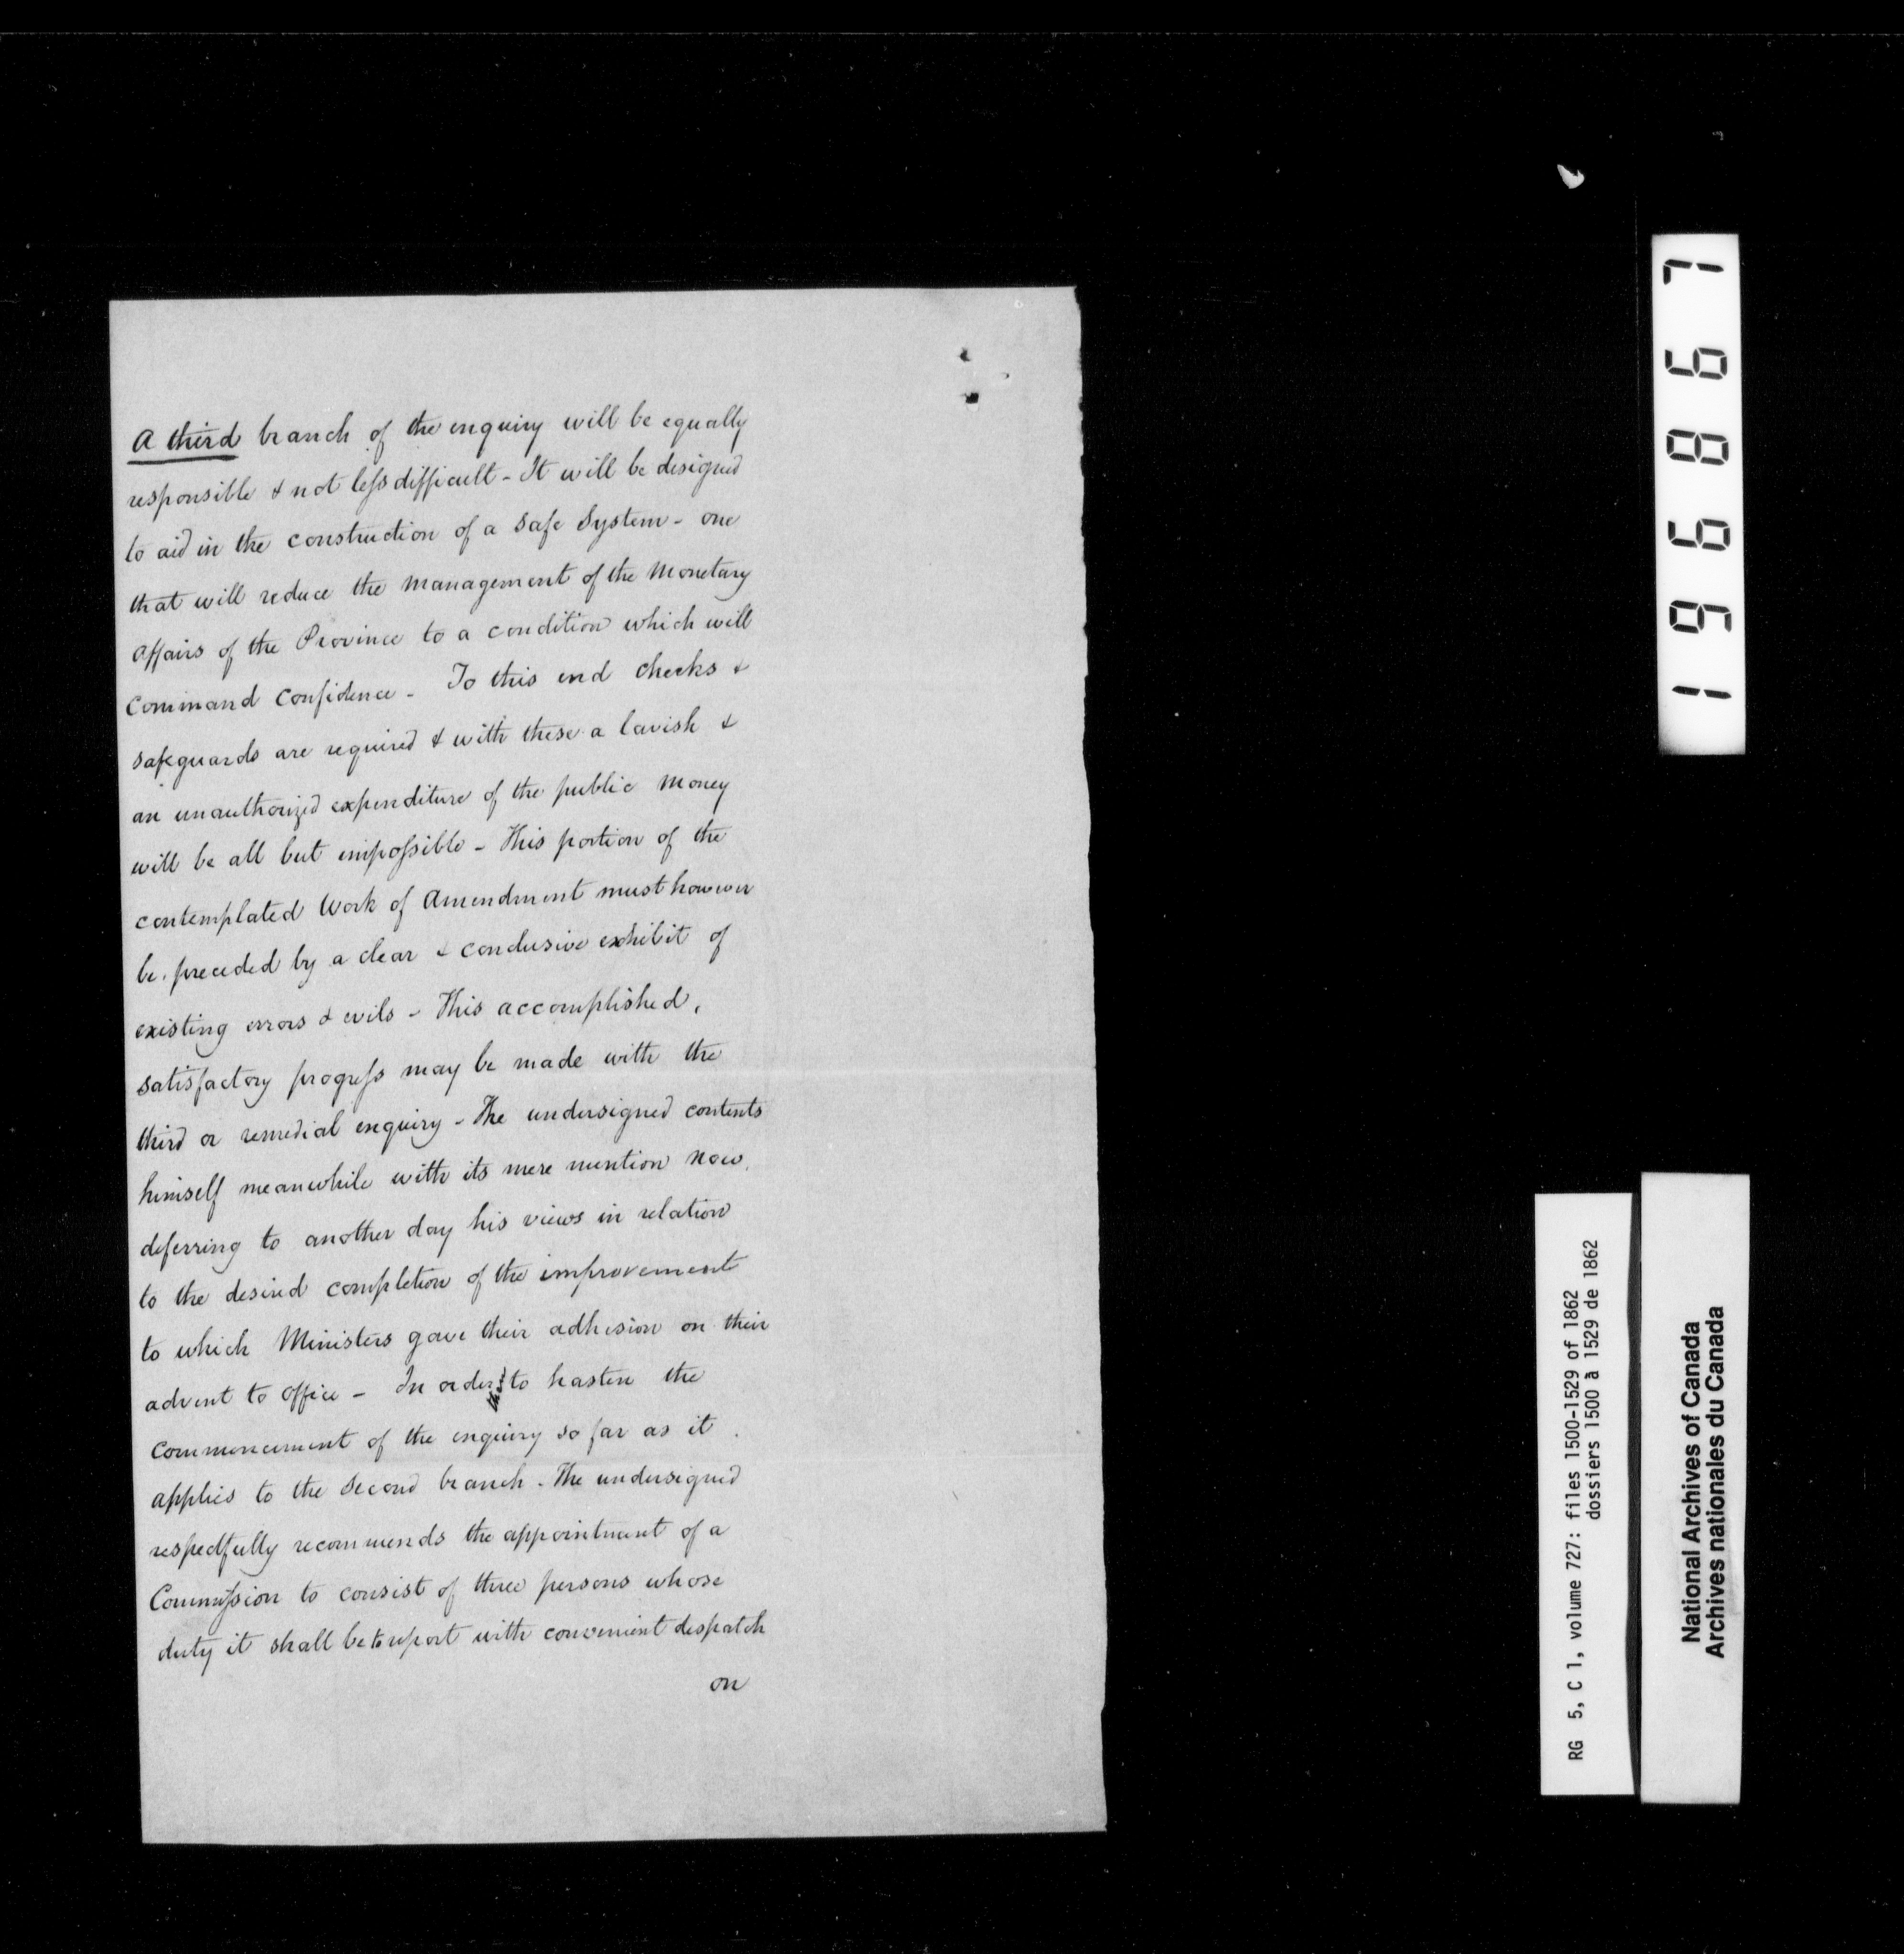 A third branch of the enquiry will be equally
responsible & not less difficult - It will be designed
to aid in the construction of a safe System - one
that will reduce the management of the Monetary
affairs of the Province to a condition which will
command confidence - To this end checks &
safeguards are required & with these a lavish &
an unauthorized expenditure of the public money
will be all but impossible - This portion of the
contemplated Work of Amendment must however
be preceded by a clear & conclusive exhibit of
existing errors & evils - This accomplished,
satisfactory progress may be made with the
third or remedial enquiry - The undersigned contents
himself meanwhile with its mere mention now,
deferring to another day his views in relation
to the desired completion of the improvement
to which Ministers gave their adhesion on their
advent to office - In order to hasten the
commencement of the enquiry so far as it
applies to the second branch - The undersigned
respectfully recommends the appointment of a
Commission to consist of three persons whose
duty it shall be to report with convenient despatch
on
196867
RG 5, C 1, volume 727: files 1500-1529 of 1862
dossiers 1500 à 1529 de 1862
National Archives of Canada
Archives nationales du Canada